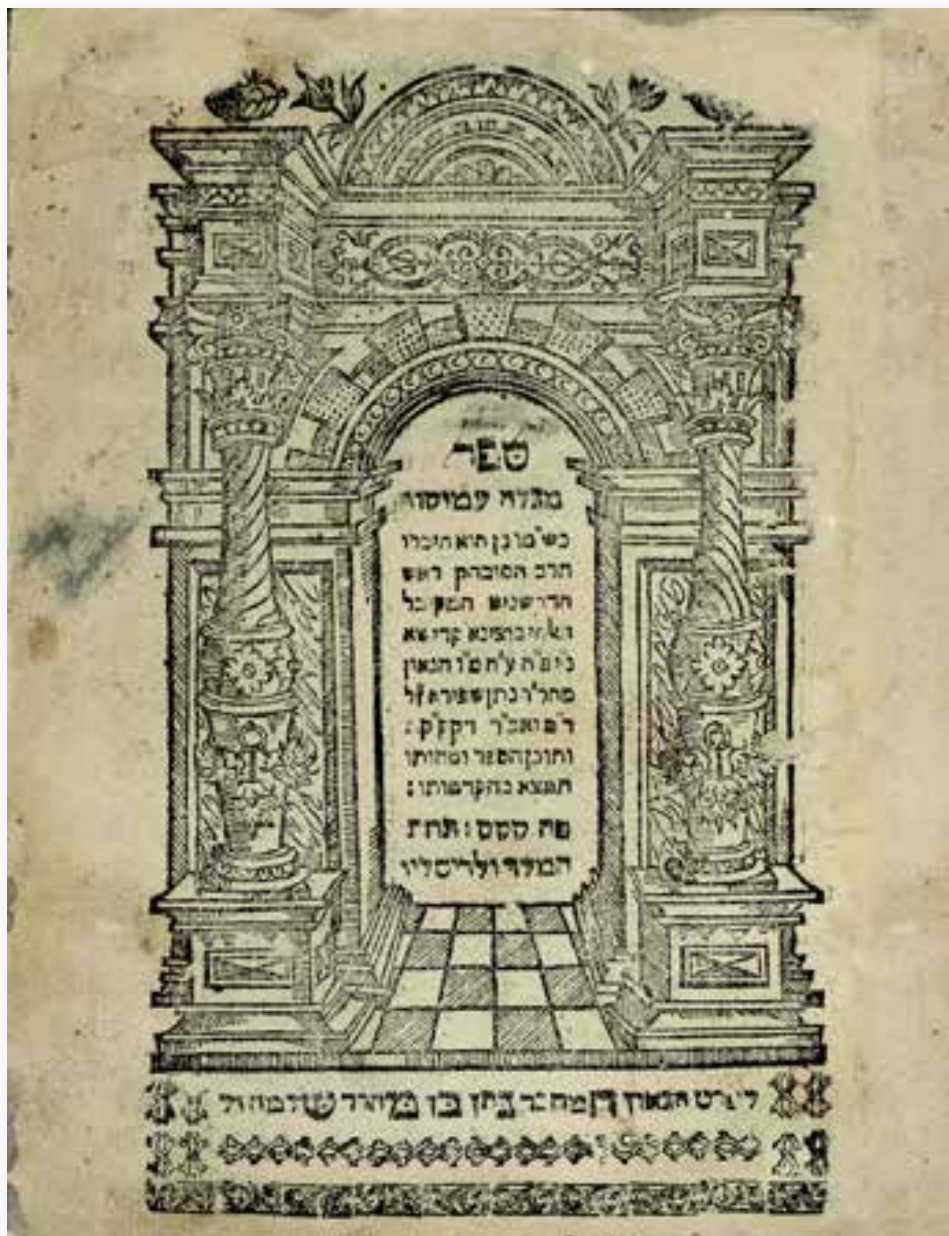 ספר
מגלה עמוקות
כש"מו כן הוא חיברו
הרב המובהק ראש
הדרשנים המקובל
האלהי בוצינא קדישא
הגאון
מהר"ר נתן שפירא ז"ל
ר"מ ואב"ד דק"ק :
ותוכן הספר ומהותו
תמצא בהקדמותו :
פה : תחת
המלך ולדיסליו
לפרט הגאון המחבר נתן בן מהרר שלמה ז"ל